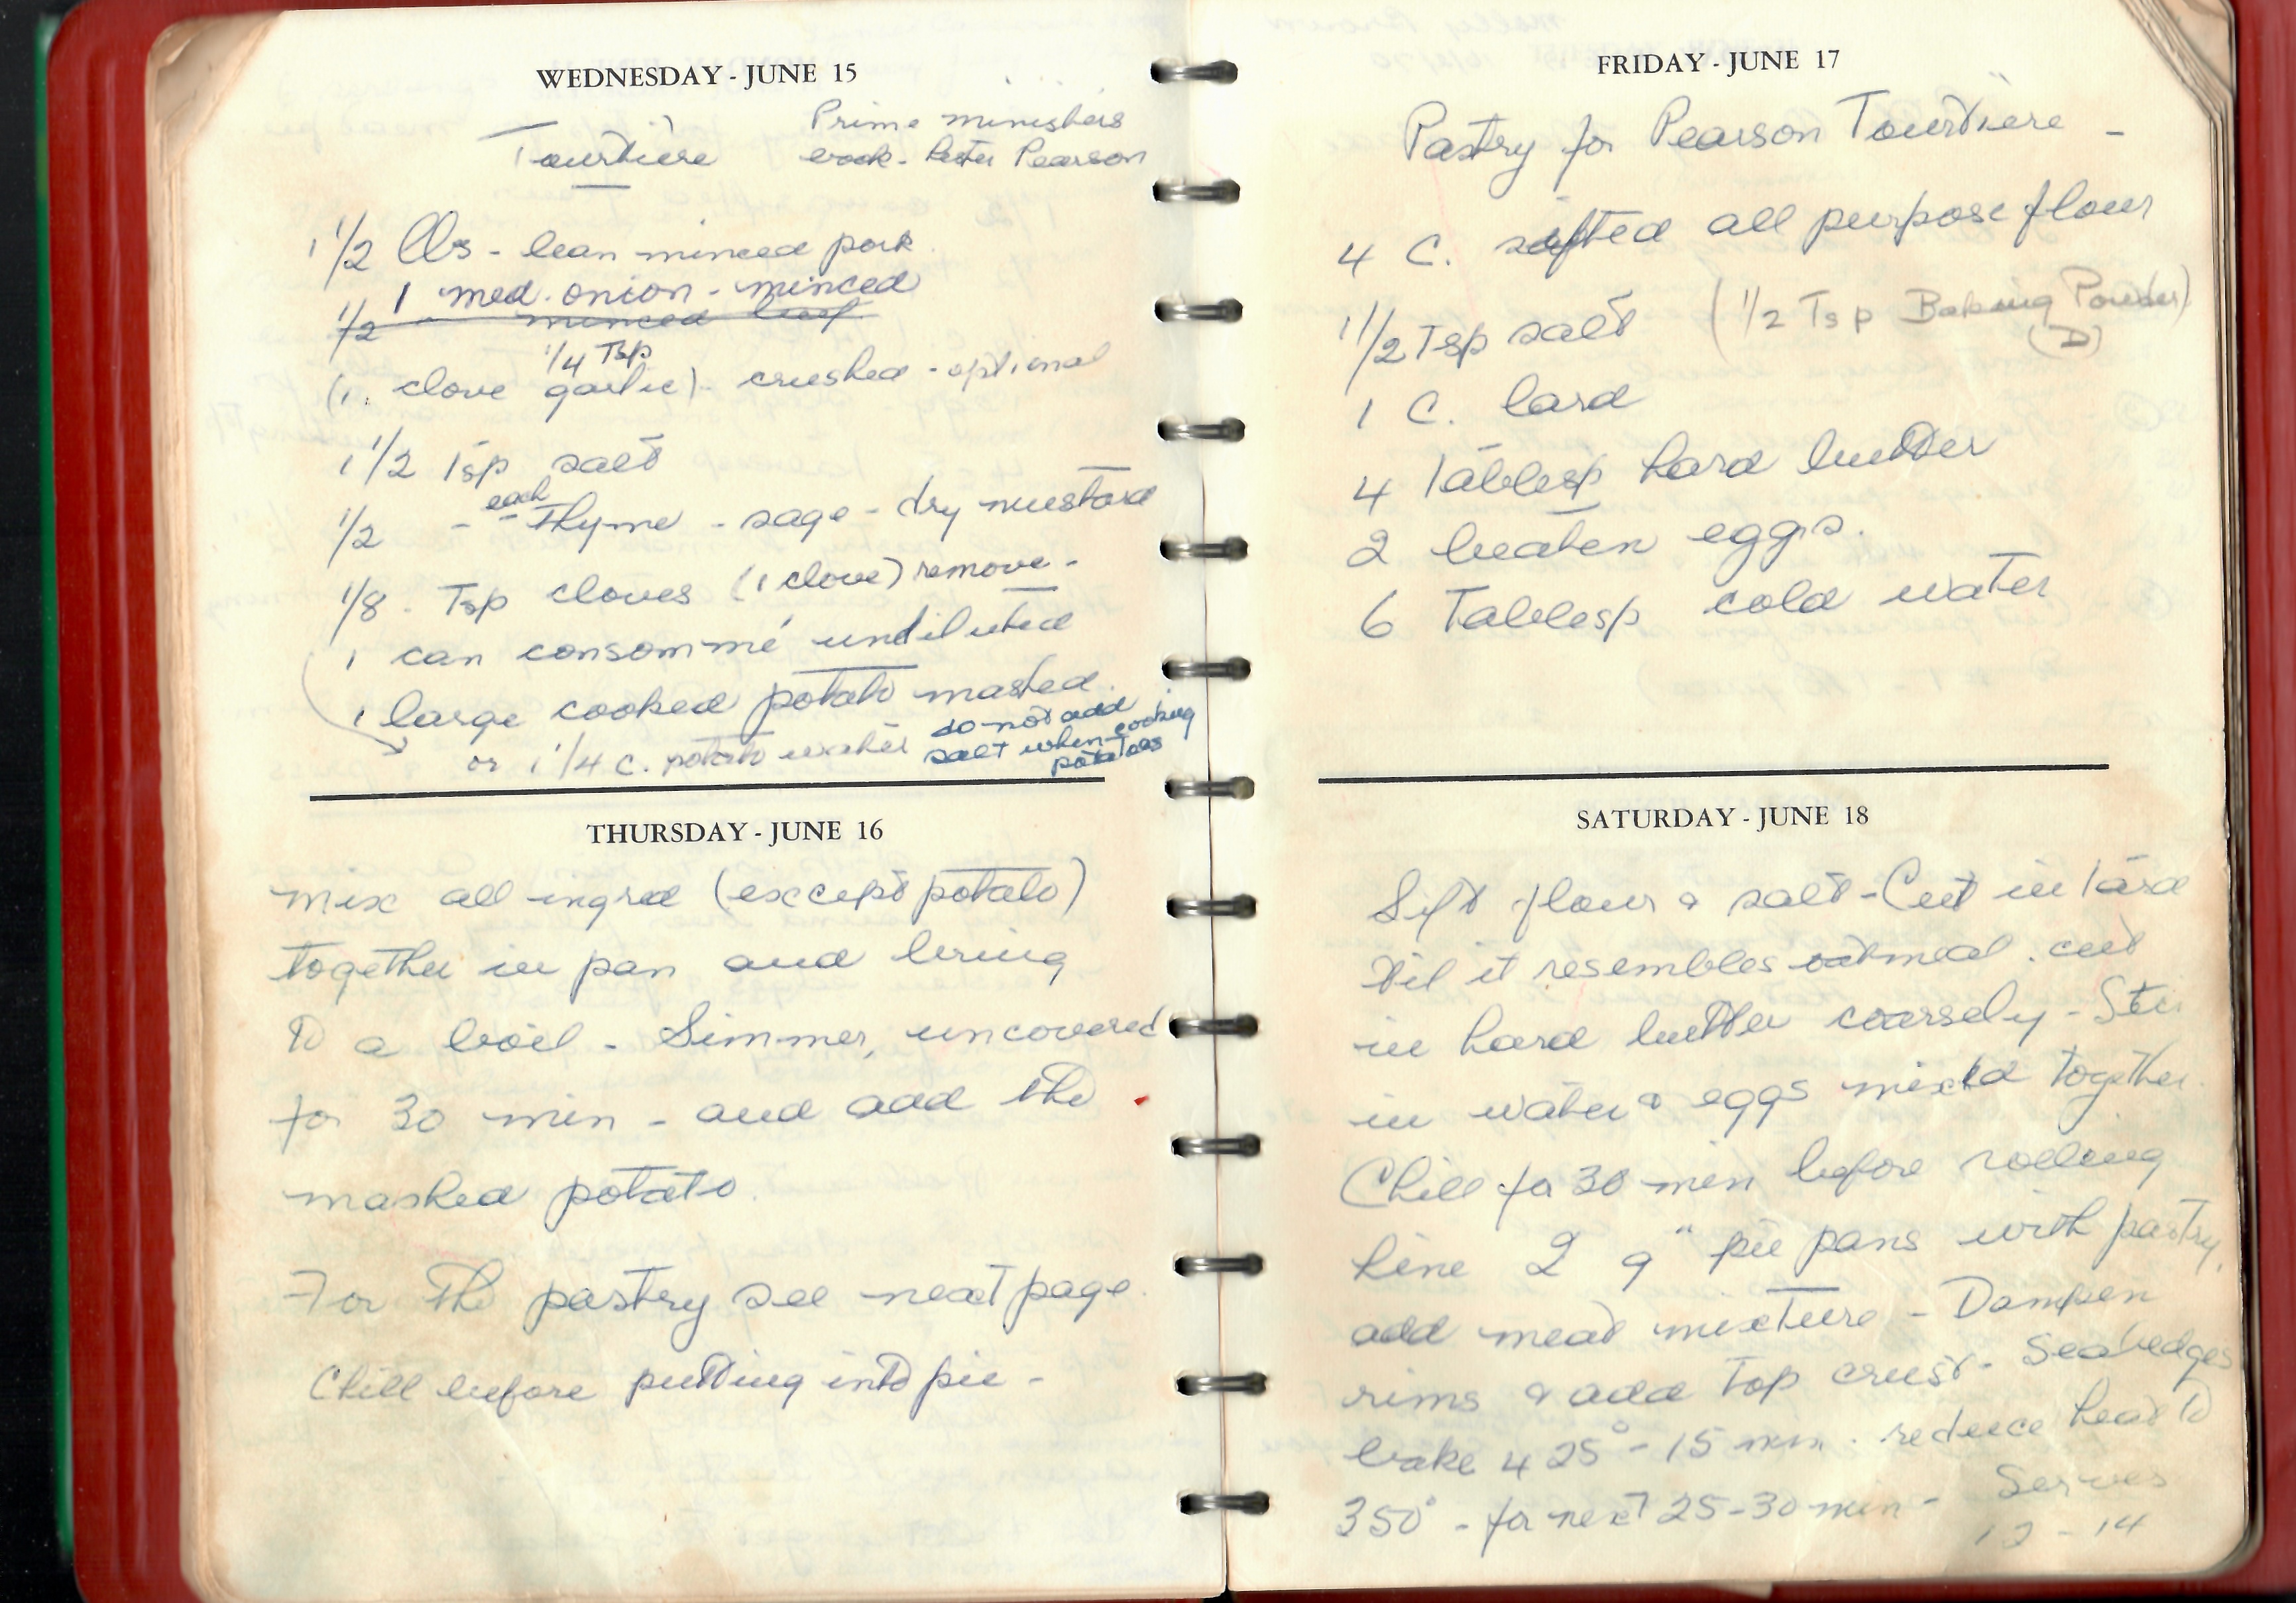 WEDNESDAY - JUNE 15
Tourtière
Prime ministers
book - Lester Pearson
1 1/2 lbs - lean minced pork
1 med. onion - minced
1/2 minced beef
1/4 Tsp
(1. clove garlic) - crushed - optional
1 1/2 Tsp salt
each
1/2 - - Thyme - sage - dry mustard
1/8 . Tsp cloves (1 clove) remove -
1 can consommé undiluted
1 large cooked potato mashed.
or 1 1/4 c. potato water
do not add
salt when cooking
potatoes
THURSDAY - JUNE 16
mix all ingred (except potato)
together in pan and bring
to a boil - Simmer, uncovered
for 30 min - and add the
mashed potato.
For the pastry see next page.
Chill before putting into pie -
FRIDAY - JUNE 17
Pastry for Pearson Tourtière -
4 C. sifted all purpose flour
1 1/2 Tsp salt (1/2 Tsp Baking Powder)
(D)
1 C. lard
4 Tablesp hard butter
2 beaten eggs.
6 Tablesp cold water
SATURDAY - JUNE 18
Sift flour & salt - Cut in lard
til it resembles oatmeal . cut
in hard butter coarsely - Stir
in water & eggs mixed together.
Chill for 30 min before rolling
Line 2 9" pie pans with pastry,
add meat mixture - Dampen
rims & add top crust - Seal edges
bake 425° - 15 min . reduce heat to
350° - for next 25-30 min - Serves
12 - 14